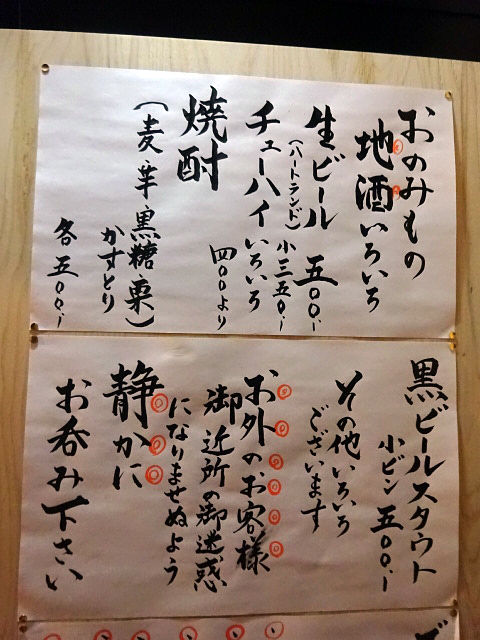 おのみもの
地酒いろいろ
生ビール 五〇〇、
(ハートランド) 小三五〇、
チューハイいろいろ
四〇〇より
焼酎
(麦・芋・黒糖・粟)
かすとり
各五〇〇、
黒ビールスタウト
小ビン 五〇〇、
その他いろいろ
ございます
お外のお客様
御近所の御迷惑
になりませぬよう
静かに
お呑み下さい